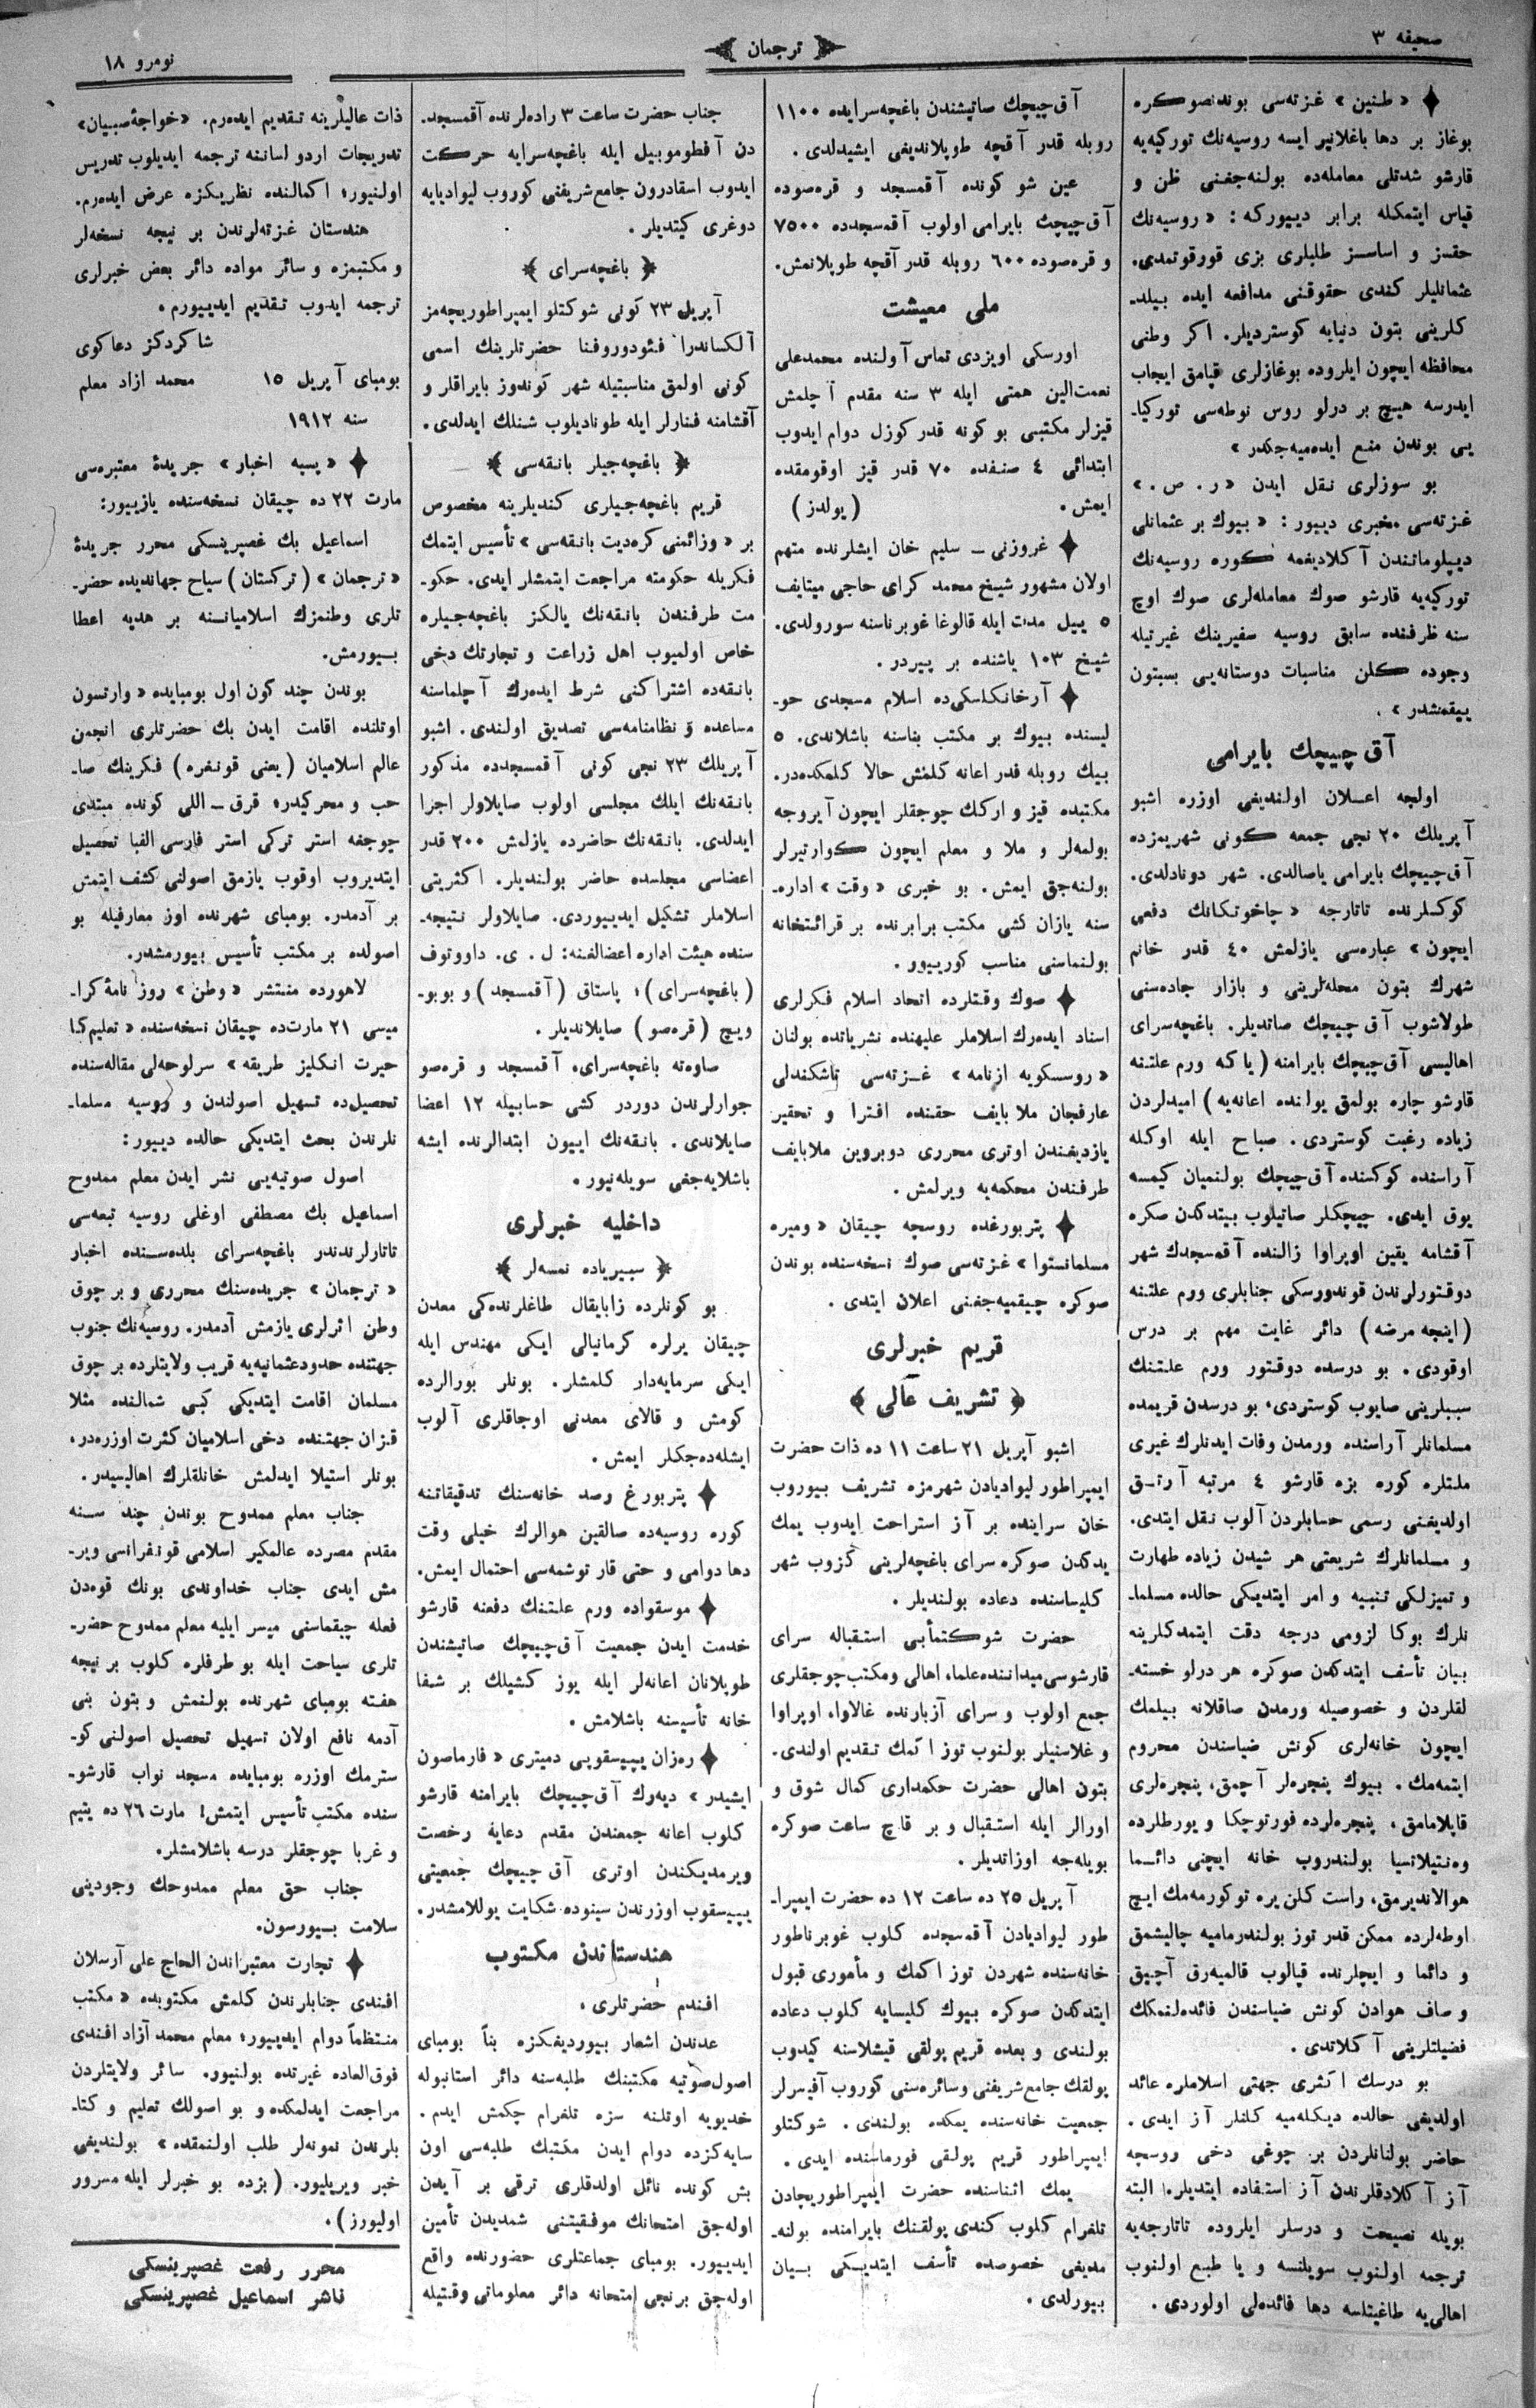 صحیفه ٣
ترجمان
نومرو ١٨
« طنین » غزته‌سی بوندنصوڭره
بوغاز بر دها باغلانیر ایسه روسیه‌نك توركیه‌یه
قارشو شدتلی معامله‌ده بولنه‌جغنی ظن و
قیاس ایتمكله برابر دیپوركه : « روسیه‌نك
حقسز و اساسسز طلبلری بزی قورقوتمدی.
عثمانلیلر كندی حقوقنی مدافعه ایده بیلد-
كلرینی بتون دنیایه كوستردیلر. اكر وطنی
محافظه ایچون ایلروده بوغازلری قپامق ایجاب
ایدرسه هیچ بر درلو روس نوطه‌سی توركیا-
یی بوندن منع ایده‌میه‌جكدر »
بو سوزلری نقل ایدن « ر . ص . »
غزته‌سی مخبری دیپور : « بیوك بر عثمانلی
دیپلوماتندن آكلادیغمه كوره روسیه‌نك
توركیه‌یه قارشو صوك معامله‌لری صوك اوچ
سنه ظرفنده سابق روسیه سفیرینك غیرتیله
وجوده كلن مناسبات دوستانه‌یی بسبتون
ییقمشدر » .
آق چیچك بایرامی
اولجه اعلان اولندیغی اوزره اشبو
آپریلك ٢٠ نجی جمعه كونی شهریمزده
آق‌چیچك بایرامی یاصالدی. شهر دونادلدی.
كوكسلرنده تاتارجه « چاخوتكانك دفعی
ایچون » عباره‌سی یازلمش ٤٠ قدر خانم
شهرك بتون محله‌لرینی و بازار جاده‌سنی
طولاشوب آق چیچك صاتدیلر. باغچه‌سرای
اهالیسی آق‌چیچك بایرامنه ( یا كه ورم علتنه
قارشو چاره بولمق یولنده اعانه‌یه ) امیدلردن
زیاده رغبت كوستردی . صباح ایله اوكله
آراسنده كوكسنده آق‌چیچك بولنمیان كیمسه
یوق ایدی. چیچكلر صاتیلوب بیتدكدن صكره
آقشامه یقین اوپراوا زالنده آقمسجدك شهر
دوقتورلرندن قوندورسكی جنابلری ورم علتنه
( اینجه مرضه ) دائر غایت مهم بر درس
اوقودی . بو درسده دوقتور ورم علتنك
سببلرینی صایوب كوستردی، بو درسدن قریمده
مسلمانلر آراسنده ورمدن وفات ایدنلرك غیری
ملتلره كوره بزه قارشو ٤ مرتبه آرتق
اولدیغنی رسمی حسابلردن آلوب نقل ایتدی.
و مسلمانلرك شریعتی هر شیدن زیاده طهارت
و تمیزلكی تنبیه و امر ایتدیكی حالده مسلما-
نلرك بوكا لزومی درجه دقت ایتمدكلرینه
بیان تأسف ایتدكدن صوكره هر درلو خسته-
لقلردن و خصوصیله ورمدن صاقلانه بیلمك
ایچون خانه‌لری كونش ضیاسندن محروم
ایتمه‌مك . بیوك پنجره‌لر آچمق، پنجره‌لری
قاپلامامق ، پنجره‌لرده فورتوچكا و یورطلرده
وه‌نتیلاتسیا بولندروب خانه ایچنی دائما
هوالاندیرمق، راست كلن یره توكورمه‌مك ایچ
اوطه‌لرده ممكن قدر توز بولندرمامیه چالیشمق
و دائما و ایچلرنده قپالوب قالمیه‌رق آچیق
و صاف هوادن كونش ضیاسندن فائده‌لنمكك
فضیلتلرینی آكلاتدی .
بو درسك اكثری جهتی اسلاملره عائد
اولدیغی حالده دیكله‌میه كلنلر آز ایدی .
حاضر بولنانلردن بر چوغی دخی روسچه
آز آكلادقلرندن آز استفاده ایتدیلر. البته
بویله نصیحت و درسلر ایلروده تاتارجه‌یه
ترجمه اولنوب سویلنسه و یا طبع اولنوب
اهالی‌یه طاغیتلسه دها فائده‌لی اولوردی .
آق‌چیچك صاتیشندن باغچه‌سرایده ١١٠٠
روبله قدر آقچه طوپلاندیغی ایشیدلدی .
عین شو كونده آقمسجد و قره‌صوده
آق‌چیچك بایرامی اولوب آقمسجدده ٧٥٠٠
و قره‌صوده ٦٠٠ روبله قدر آقچه طوپلانمش.
ملی معیشت
اورسكی اویزدی تماس آولنده محمدعلی
نعمت‌الین همتی ایله ٣ سنه مقدم آچلمش
قیزلر مكتبی بو كونه قدر كوزل دوام ایدوب
ابتدائی ٤ صنفده ٧٠ قدر قیز اوقومقده
ایمش . ( یولدز )
غروزنی – سلیم خان ایشلرنده متهم
اولان مشهور شیخ محمد كرای حاجی میتایف
٥ ییل مدت ایله قالوغا غوبرناسنه سورولدی.
شیخ ١٠٣ یاشنده بر پیردر .
آرخانكلسكی‌ده اسلام مسجدی حو-
لیسنده بیوك بر مكتب بناسنه باشلاندی. ٥
بیك روبله قدر اعانه كلمش حالا كلمكده‌در.
مكتبده قیز و اركك چوجقلر ایچون آیروجه
بولمه‌لر و ملا و معلم ایچون كوارتیرلر
بولنه‌جق ایمش. بو خبری « وقت » اداره-
سنه یازان كشی مكتب برابرنده بر قرائتخانه
بولنماسنی مناسب كوریور .
صوك وقتلرده اتحاد اسلام فكرلری
اسناد ایده‌رك اسلاملر علیهنده نشریاتده بولنان
« روسسكویه ازنامه » غزته‌سی تاشكندلی
عارفجان ملا بایف حقنده افترا و تحقیر
یازدیغندن اوتری محرری دوبروین ملابایف
طرفندن محكمه‌یه ویرلمش .
پتربورغده روسچه چیقان « ومیره
مسلمانستوا » غزته‌سی صوك نسخه‌سنده بوندن
صوكره چیقمیه‌جغنی اعلان ایتدی .
قریم خبرلری
﴿ تشریف عالی ﴾
اشبو آپریل ٢١ ساعت ١١ ده ذات حضرت
ایمپراطور لیوادیادن شهرمزه تشریف بیوروب
خان سراینده بر آز استراحت ایدوب یمك
یدكدن صوكره سرای باغچه‌لرینی كزوب شهر
كلیساسنده دعاده بولندیلر .
حضرت شوكتمأبی استقباله سرای
قارشوسی میداننده علماء اهالی و مكتب چوجقلری
جمع اولوب و سرای آزبارنده غالاوا، اوپراوا
و غلاسنیلر بولنوب توز اكمك تقدیم اولندی.
بتون اهالی حضرت حكمداری كمال شوق و
اورالر ایله استقبال و بر قاچ ساعت صوكره
بویله‌جه اوزاتدیلر .
آپریل ٢٥ ده ساعت ١٢ ده حضرت ایمپرا-
طور لیوادیادن آقمسجده كلوب غوبرناطور
خانه‌سنده شهردن توز اكمك و مأموری قبول
ایتدكدن صوكره بیوك كلیسایه كلوب دعاده
بولندی و بعده قریم پولقی قیشلاسنه كیدوب
پولقك جامع شریفنی و سائره‌سنی كوروب آفیسرلر
جمعیت خانه‌سنده یمكده بولندی . شوكتلو
ایمپراطور قریم پولقی فورماسنده ایدی .
یمك اثناسنده حضرت ایمپراطوریچادن
تلغرام كلوب كندی پولقنك بایرامنده بولنه-
مدیغی خصوصده تأسف ایتدیكی بیان
بیورلدی .
جناب حضرت ساعت ٣ راده‌لرنده آقمسجد.
دن آفطوموبیل ایله باغچه‌سرایه حركت
ایدوب اسقادرون جامع شریفنی كوروب لیوادیایه
دوغری كیتدیلر .
﴿ باغچه‌سرای ﴾
آپریل ٢٣ كونی شوكتلو ایمپراطوریچه‌مز
آلكساندرا فئودوروفنا حضرتلرینك اسمی
كونی اولمق مناسبتیله شهر كوندوز بایراقلر و
آقشامنه فنارلر ایله طونادیلوب شنلك ایدلدی.
﴿ باغچه‌جیلر بانقه‌سی ﴾
قریم باغچه‌جیلری كندیلرینه مخصوص
بر « وزائمنی كره‌دیت بانقه‌سی » تأسیس ایتمك
فكریله حكومته مراجعت ایتمشلر ایدی. حكو-
مت طرفندن بانقه‌نك یالكز باغچه‌جیلره
خاص اولمیوب اهل زراعت و تجارتك دخی
بانقه‌ده اشتراكنی شرط ایده‌رك آچلماسنه
مساعده و نظامنامه‌سی تصدیق اولندی. اشبو
آپریلك ٢٣ نجی كونی آقمسجدده مذكور
بانقه‌نك ایلك مجلسی اولوب صایلاولر اجرا
ایدلدی. بانقه‌نك حاضرده یازلمش ٢٠٠ قدر
اعضاسی مجلسده حاضر بولندیلر. اكثریتی
اسلاملر تشكیل ایدییوردی. صایلاولر نتیجه-
سنده هیئت اداره اعضالغنه: ل . ی. داووتوف
( باغچه‌سرای )؛ پاستاق ( آقمسجد ) و بوبو-
ویچ ( قره‌صو ) صایلاندیلر.
صاوه‌ته باغچه‌سرای، آقمسجد و قره‌صو
جوارلرندن دوردر كشی حسابیله ١٢ اعضا
صایلاندی. بانقه‌نك اییون ابتدالرنده ایشه
باشلایه‌جغی سویله‌نیور .
داخلیه خبرلری
﴿ سیبیریاده نمسه‌لر ﴾
بو كونلرده زابایقال طاغلرنده‌كی معدن
چیقان یرلره كرمانیالی ایكی مهندس ایله
ایكی سرمایه‌دار كلمشلر. بونلر بورالرده
كومش و قالای معدنی اوجاقلری آلوب
ایشله‌ده‌جكلر ایمش .
پتربورغ رصد خانه‌سنك تدقیقاتنه
كوره روسیه‌ده صالقین هوالرك خیلی وقت
دها دوامی و حتی قار توشمه‌سی احتمال ایمش.
موسقواده ورم علتنك دفعنه قارشو
خدمت ایدن جمعیت آق‌چیچك صاتیشندن
طوپلانان اعانه‌لر ایله یوز كشیلك بر شفا
خانه تأسیسنه باشلامش .
ره‌زان یپیسقوپی دمیتری « فارماصون
ایشیدر » دیه‌رك آق‌چیچك بایرامنه قارشو
كلوب اعانه جمعندن مقدم دعایه رخصت
ویرمدیكندن اوتری آق چیچك جمعیتی
یپیسقوب اوزرندن سینوده شكایت یوللامشدر.
هندستاندن مكتوب
افندم حضرتلری ،
عدندن اشعار بیوردیغكزه بناً بومبای
اصول‌صوتیه مكتبنك طلبه‌سنه دائر استانبوله
خدیویه اوتلنه سزه تلغرام چكمش ایدم .
سایه‌كزده دوام ایدن مكتبك طلبه‌سی اون
بش كونده نائل اولدقلری ترقی بر آیدن
اوله‌جق امتحانك موفقیتنی شمدیدن تأمین
ایدییور. بومبای جماعتلری حضورنده واقع
اوله‌جق برنجی امتحانه دائر معلوماتی وقتیله
ذات عالیلرینه تقدیم ایده‌رم. « خواجهٔ صبیان »
تدریجات اردو لساننه ترجمه ایدیلوب تدریس
اولنیور؛ اكمالنده نظریكزه عرض ایده‌رم.
هندستان غزته‌لرندن بر نیچه نسخه‌لر
و مكتبمزه و سائر مواده دائر بعض خبرلری
ترجمه ایدوب تقدیم ایدییورم .
شاكردكز دعاكوی
بومبای آپریل ١٥ محمد ازاد معلم
سنه ١٩١٢
« پسیه اخبار » جریدهٔ معتبره‌سی
مارت ٢٢ ده چیقان نسخه‌سنده یازییور:
اسماعیل بك غصپرینسكی محرر جریدهٔ
« ترجمان » ( تركستان ) سیاح جهاندیده حضر-
تلری وطنمزك اسلامیانسنه بر هدیه اعطا
بیورمش.
بوندن چند كون اول بومبایده « وارتسون
اوتلنده اقامت ایدن بك حضرتلری انجمن
عالم اسلامیان ( یعنی قونغره ) فكرینك صا-
حب و محركیدر؛ قرق – اللی كونده مبتدی
چوجغه استر تركی استر فارسی الفبا تحصیل
ایتدیروب اوقوب یازمق اصولنی كشف ایتمش
بر آدمدر. بومبای شهرنده اوز معارفیله بو
اصولده بر مكتب تأسیس بیورمشدر.
لاهورده منتشر « وطن » روز نامهٔ كرا-
میسی ٢١ مارت‌ده چیقان نسخه‌سنده « تعلیم‌كا
حیرت انكلیز طریقه » سرلوحه‌لی مقاله‌سنده
تحصیل‌ده تسهیل اصولندن و روسیه مسلما-
نلرندن بحث ایتدیكی حالده دیپور :
اصول صوتیه‌یی نشر ایدن معلم ممدوح
اسماعیل بك مصطفی اوغلی روسیه تبعه‌سی
تاتارلرندندر باغچه‌سرای بلده‌سنده اخبار
« ترجمان » جریده‌سنك محرری و بر چوق
وطن اثرلری یازمش آدمدر. روسیه‌نك جنوب
جهتنده حدودعثمانیه‌یه قریب ولایتلرده بر چوق
مسلمان اقامت ایتدیكی كبی شمالنده مثلا
قزان جهتنده دخی اسلامیان كثرت اوزره‌در،
بونلر استیلا ایدلمش خانلقلرك اهالیسیدر.
جناب معلم ممدوح بوندن چند سنه
مقدم مصرده عالمكیر اسلامی قونفرانسی ویر-
مش ایدی جناب خداوندی بونك قوه‌دن
فعله چیقماسنی میسر ایلیه معلم ممدوح حضر-
تلری سیاحت ایله بو طرفلره كلوب بر نیچه
هفته بومبای شهرنده بولنمش و بتون بنی
آدمه نافع اولان تسهیل تحصیل اصولنی كو-
سترمك اوزره بومبایده مسجد نواب قارشو-
سنده مكتب تأسیس ایتمش! مارت ٢٦ ده یتیم
و غربا چوجقلر درسه باشلامشلر.
جناب حق معلم ممدوحك وجودینی
سلامت بیورسون.
تجارت معتبراندن الحاج علی آرسلان
افندی جنابلرندن كلمش مكتوبده « مكتب
منتظماً دوام ایدییور؛ معلم محمد آزاد افندی
فوق‌العاده غیرتده بولنیور. سائر ولایتلردن
مراجعت ایدلمكده و بو اصولك تعلیم و كتا-
بلرندن نمونه‌لر طلب اولنمقده » بولندیغی
خبر ویریلیور. ( بزده بو خبرلر ایله مسرور
اولیورز ) .
محرر رفعت غصپرینسكی
ناشر اسماعیل غصپرینسكی